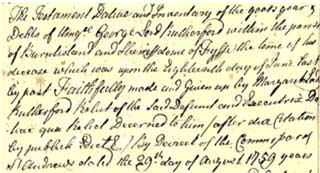 The Testament Dative and Inventary of the goods gear &
Debts of George Lord Rutherford within the parish
of Burntisland and Sherriffdome of Fyffe the time of his
decease which was upon the Eighteenth day of June last
by past Faithfully made and Given up by Margaret
Rutherford Relict of the said Defunct and Executrix Da
tive qua Relict Decerned to him (after due Citation
by publick Edict) By Decreet of the Commissar of
St Andrews dated the 29th day of August 1759 years